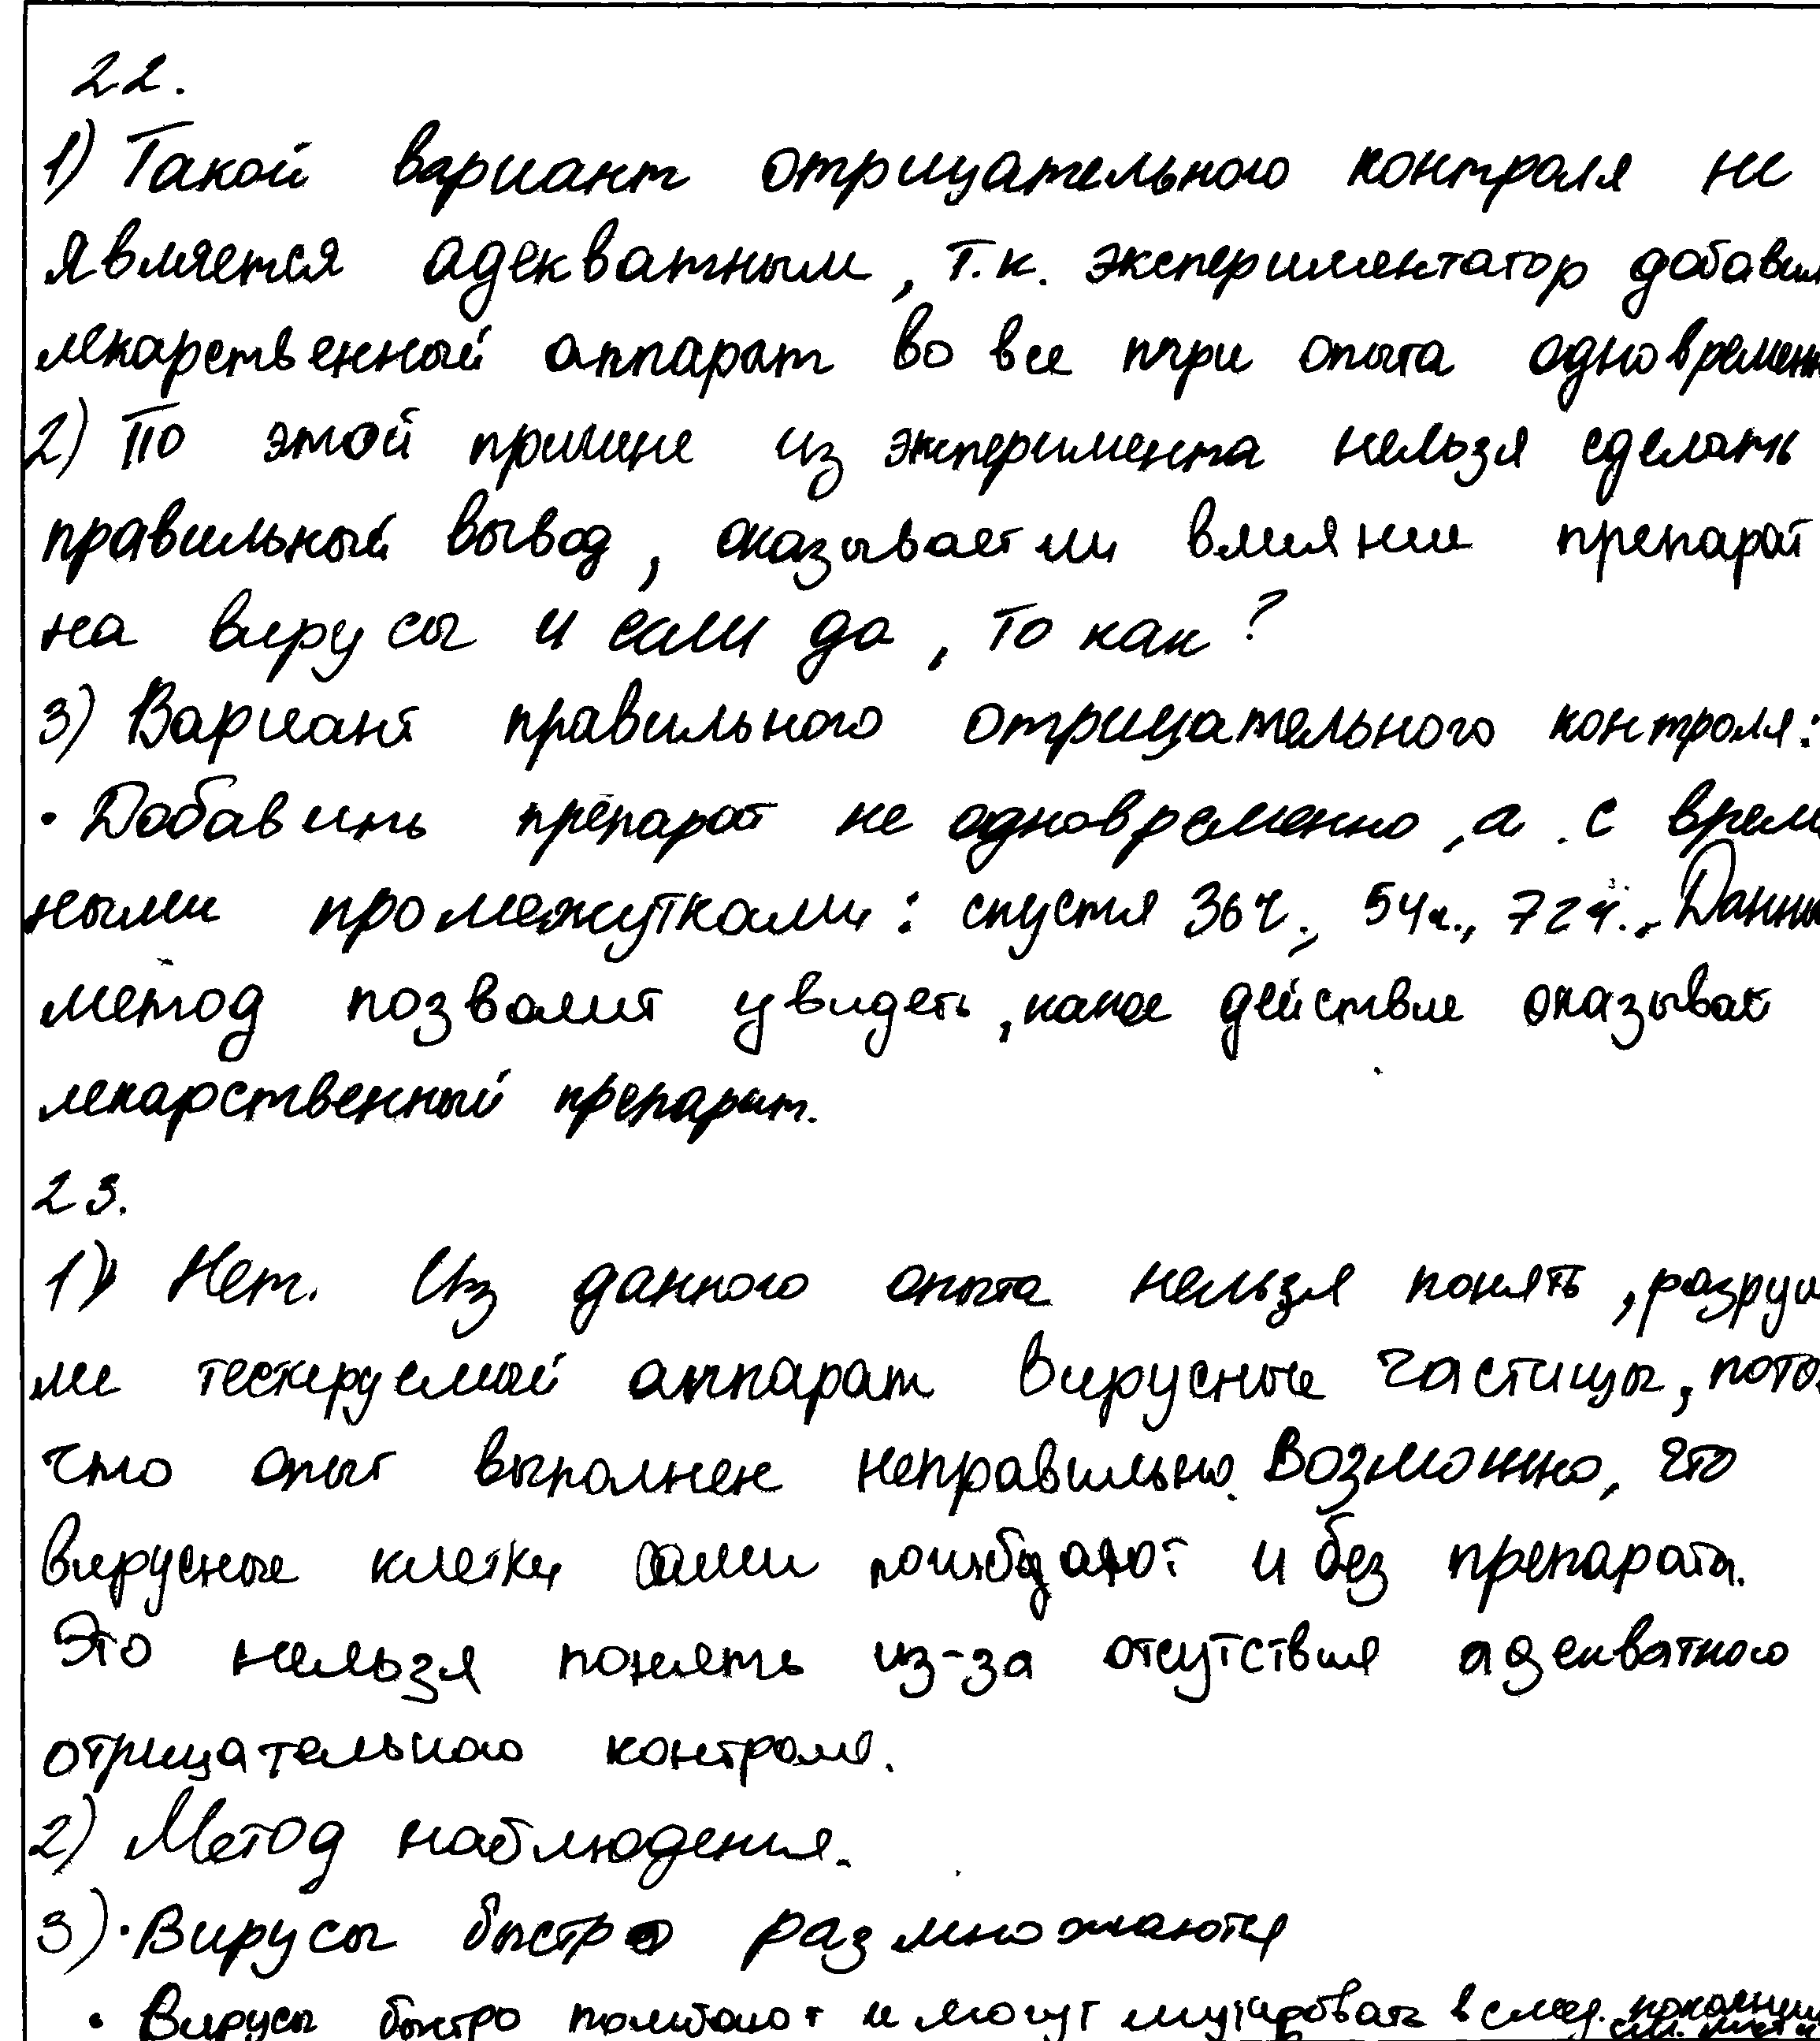 22.
1) Такой вариант отрицательного контроля не
является адекватным, т.к. экспериментатор добавил
лекарственный аппарат во все три опыта одновремен
2) По этой причине из эксперимента нельзя сделать
правильный вывод, оказывает ли влияние препарат
на вирусы и если да, то как?
3) Вариант правильного отрицательного контроля:
• Добавить препарат не одновременно, а с времен
ными промежутками: спустя 36ч., 54ч., 72ч.. Данны
метод позволит увидеть, какое действие оказывает
лекарственный препарат.
23.
1) Нет. Из данного опыта нельзя понять, разруш
ли тестируемый аппарат вирусные частицы, пото
что опыт выполнен неправильно. Возможно, что
вирусные клетки сами погибают и без препарата.
Это нельзя понять из-за отсутствия адекватного
отрицательного контроля.
2) Метод наблюдения.
3) • Вирусы быстро размножаются
• Вирусы быстро погибают и могут мутировать в след.